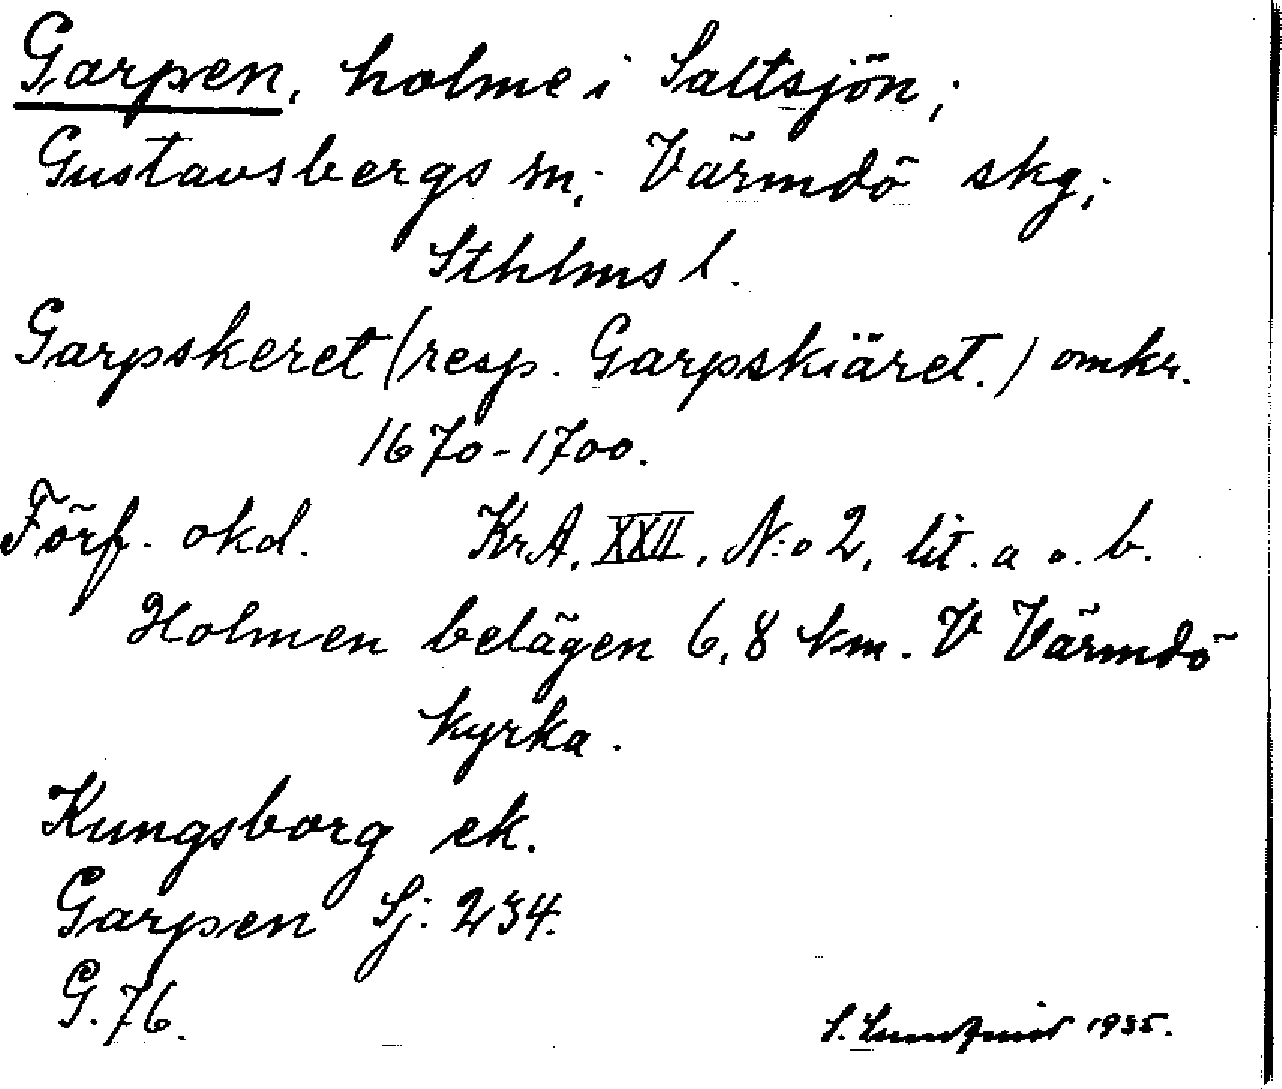 Garpen, holme i Saltsjön;
Gustavsbergs sn; Värmdö skg;
Sthlms l.
Garpskeret (resp. Garpskiäret.) omkr.
1670-1700.
Förf. okd. KrA. XXII. N:o 2, lit. a o. b.
Holmen belägen 6,8 km. V Värmdö
kyrka.
Kungsborg ek.
Garpen Sj: 234.
G. 76.
S. Lundqvist 1935.